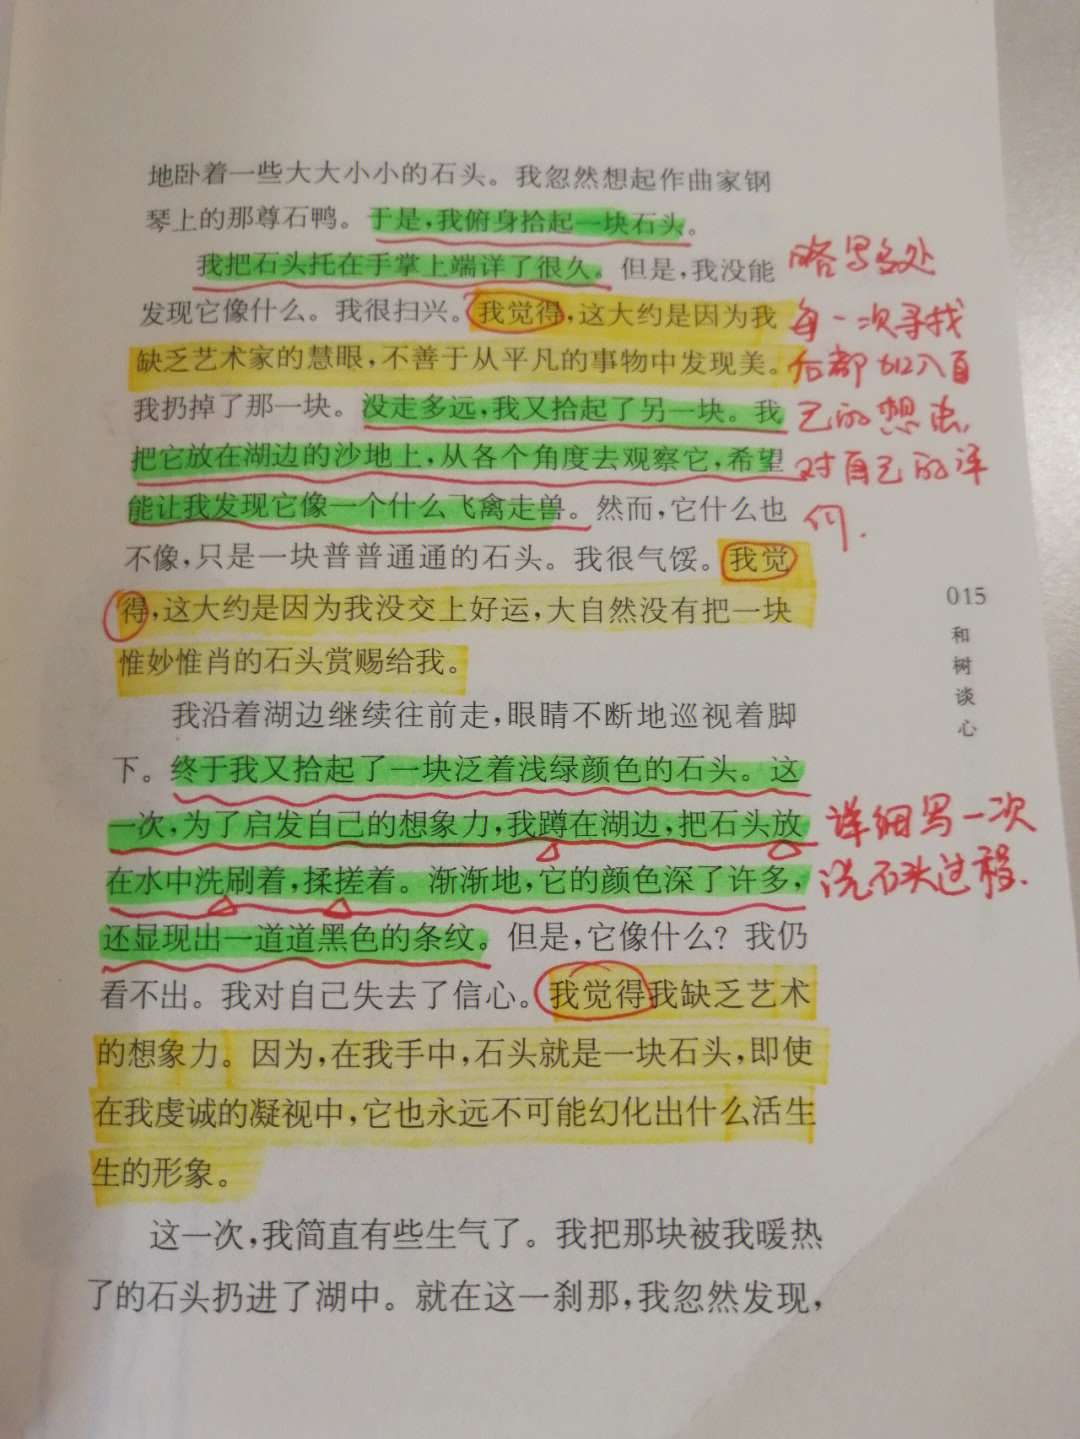 地卧着一些大大小小的石头。我忽然想起作曲家钢
琴上的那尊石鸭。于是，我俯身拾起一块石头。
我把石头托在手掌上端详了很久。但是，我没能
发现它像什么。我很扫兴。我觉得，这大约是因为我
缺乏艺术家的慧眼，不善于从平凡的事物中发现美。
我扔掉了那一块。没走多远，我又拾起了另一块。我
把它放在湖边的沙地上，从各个角度去观察它，希望
能让我发现它像一个什么飞禽走兽。然而，它什么也
不像，只是一块普普通通的石头。我很气馁。我觉
得，这大约是因为我没交上好运，大自然没有把一块
惟妙惟肖的石头赏赐给我。
我沿着湖边继续往前走，眼睛不断地巡视着脚
下。终于我又拾起了一块泛着浅绿颜色的石头。这
一次，为了启发自己的想象力，我蹲在湖边，把石头放
在水中洗刷着，揉搓着。渐渐地，它的颜色深了许多，
还显现出一道道黑色的条纹。但是，它像什么？我仍
看不出。我对自己失去了信心。我觉得我缺乏艺术
的想象力。因为，在我手中，石头就是一块石头，即使
在我虔诚的凝视中，它也永远不可能幻化出什么活生
生的形象。
这一次，我简直有些生气了。我把那块被我暖热
了的石头扔进了湖中。就在这一刹那，我忽然发现，
略写多处
每一次寻找
后都加入自
己的想法，
对自己的评
价.
详细写一次
洗石头过程.
015
和
树
谈
心